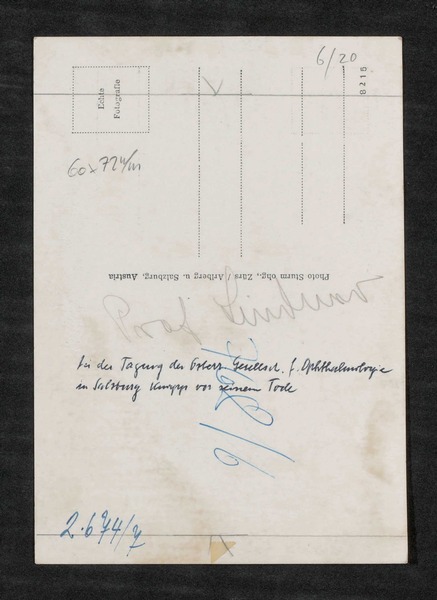 6/20
8216
Echte
Fotografie
60x72 m/m
Photo Sturm ohg., Zürs / Arlberg u. Salzburg, Austria
Prof Lindner
bei der Tagung der Österr. Gesellsch. f. Ophthalmologie
in Salzburg knapp vor seinem Tode
2.674/7